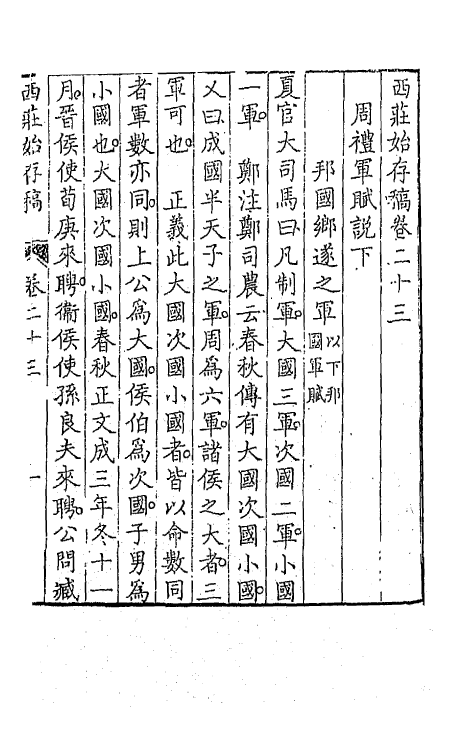 西莊始存稿卷二十三
周禮軍賦說下
邦國鄉遂之軍以下邦國軍賦
夏官大司馬曰凡制軍大國三軍次國二軍小國
一軍　鄭注鄭司農云春秋傳有大國次國小國
又曰成國半天子之軍周為六軍諸侯之大者三
軍可也　正義此大國次國小國者皆以命數同
者軍數亦同則上公爲大國侯伯爲次國子男爲
小國也大國次國小國春秋正文成三年冬十一
月晉侯使荀庚來聘衞侯使孫良夫來聘公問臧
西莊始存稿　卷二十三　一